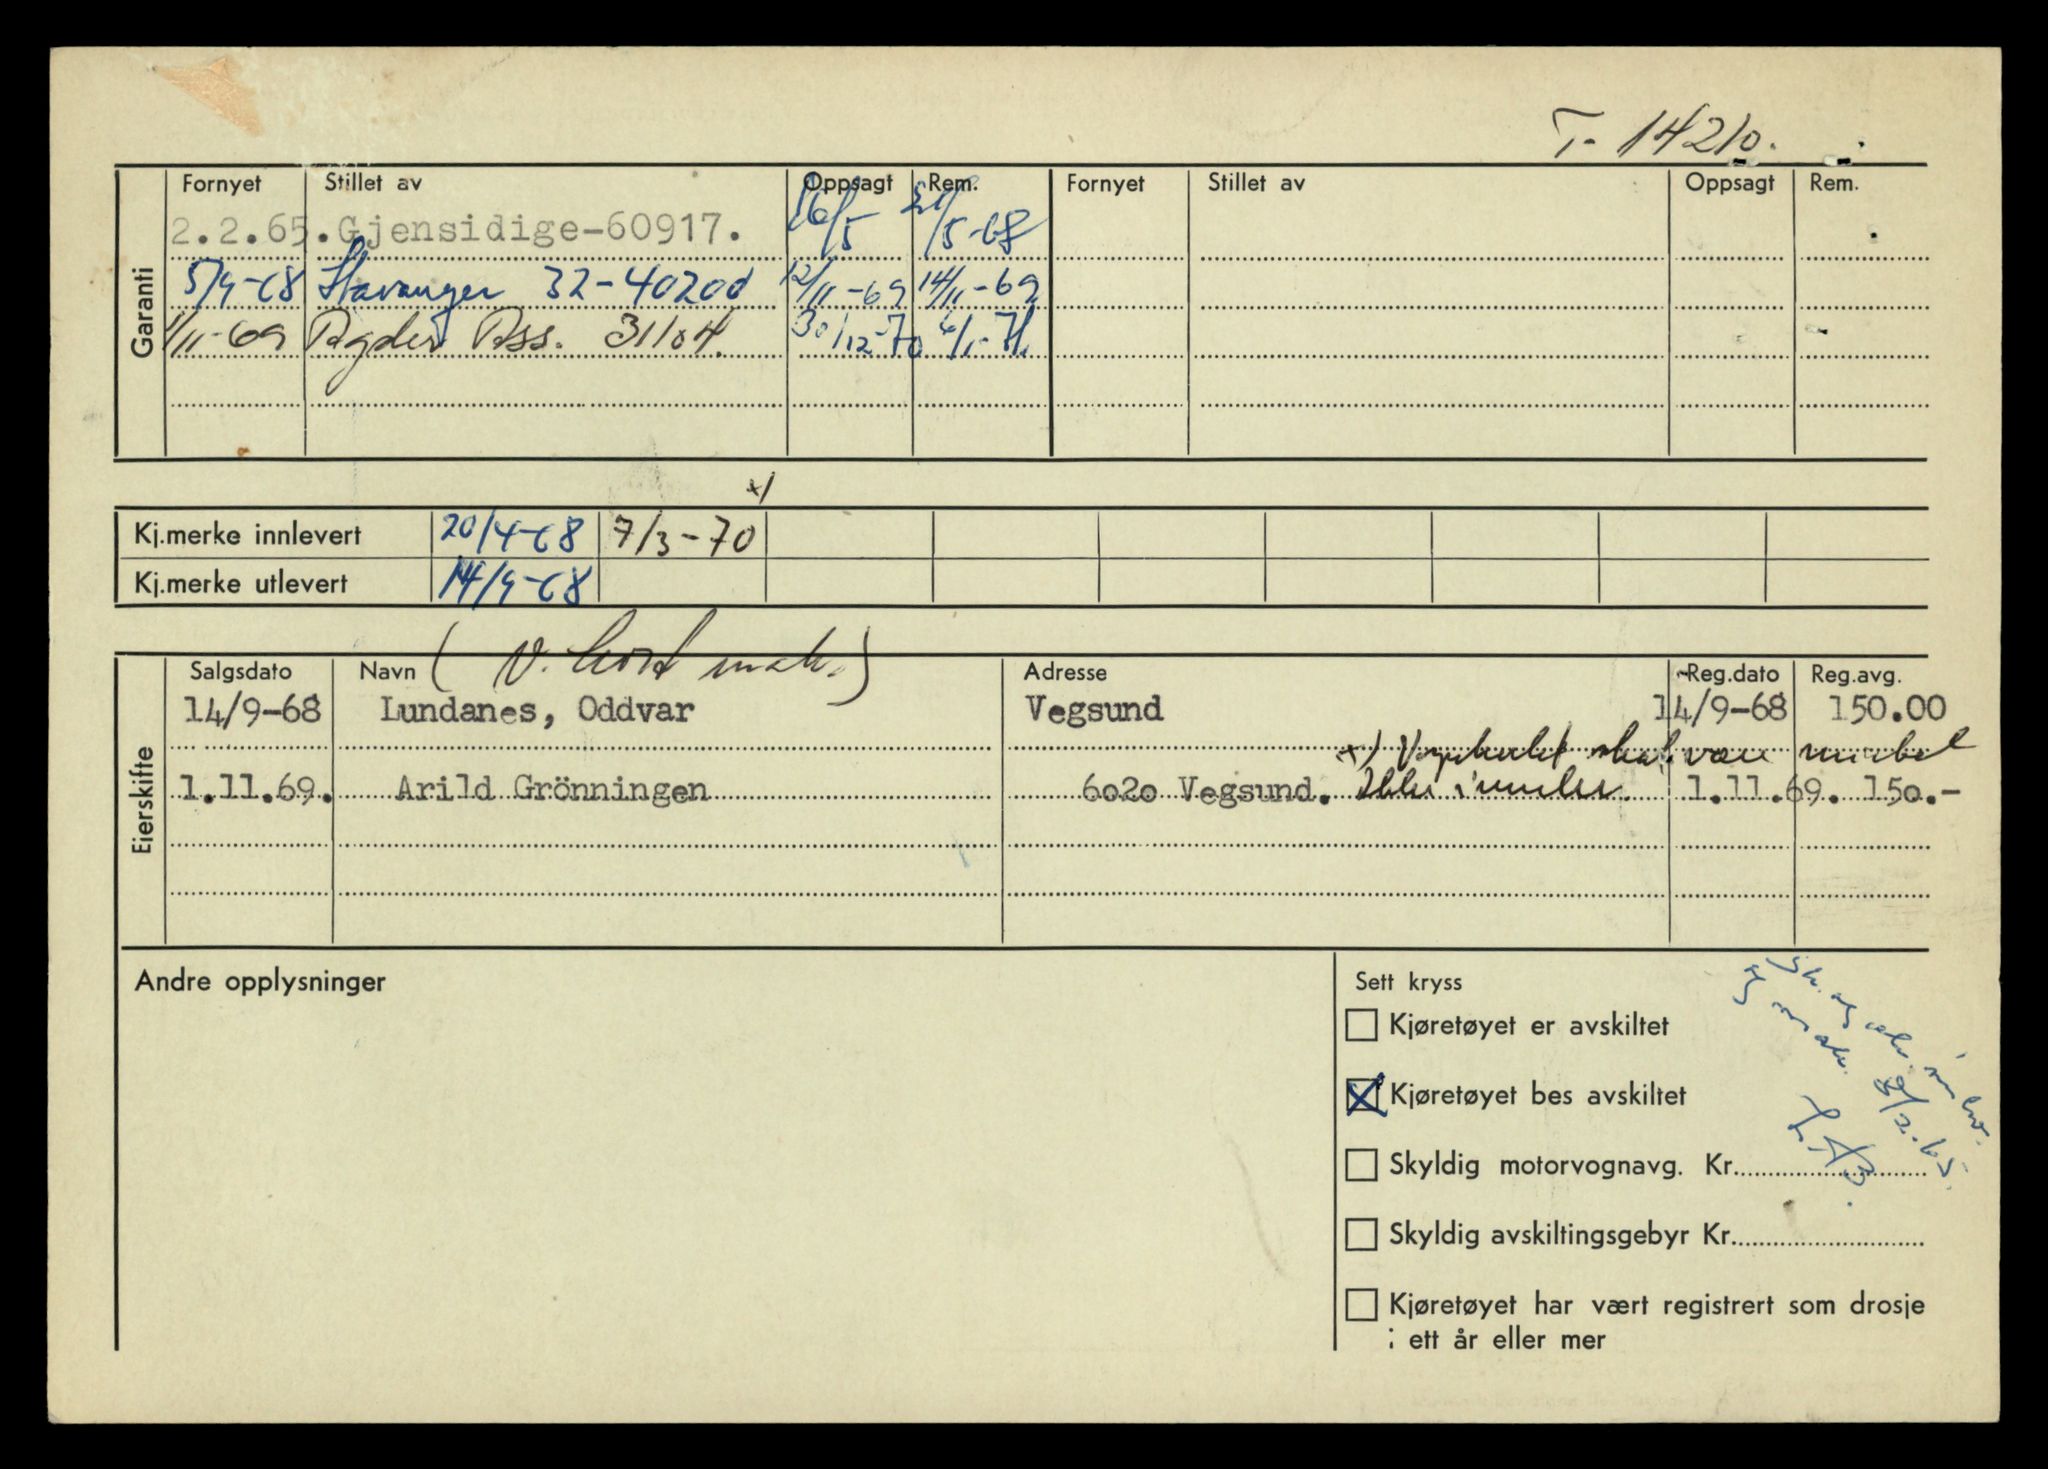 T- 14210.
Garanti
Fornyet Stillet av Oppsagt Rem. Fornyet Stillet av Oppsagt Rem.
2.2.65. Gjensidige-60917. 16/5 /5-68
5/9-68 Stavanger 32-40200 12/11-69 14/11-69
1/11-69 Agder Ass. 31104. 30/12-70 6/1-71.
x/
Kj.merke innlevert 20/4-68 7/3-70
Kj.merke utlevert 14/9-68
(V. kort mak.)
Eierskifte
Salgsdato Navn Adresse Reg.dato Reg.avg.
14/9-68 Lundanes, Oddvar Vegsund 14/9-68 150.00
x) Vognkortet skal være
1.11.69. Arild Grönningen 6020 Vegsund. 1.11.69. 150.-
Andre opplysninger
Sett kryss
Kjøretøyet er avskiltet
Kjøretøyet bes avskiltet
Skyldig motorvognavg. Kr.
Skyldig avskiltingsgebyr Kr.
Kjøretøyet har vært registrert som drosje
i ett år eller mer